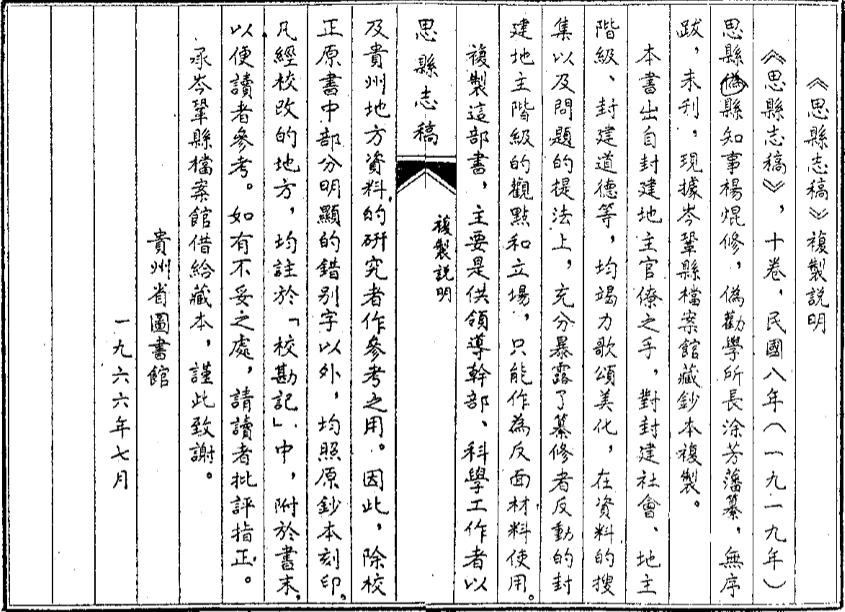 《思縣志稿》複製説明
《思縣志稿》，十卷，民國八年（一九一九年）
思縣偽縣知事楊焜修，偽勸學所長涂芳藩纂，無序
跋，未刊，現據岑鞏縣檔案館藏鈔本複製。
本書出自封建地主官僚之手，對封建社會、地主
階級、封建道德等，均竭力歌頌美化，在資料的搜
集以及問題的提法上，充分暴露了纂修者反動的封
建地主階級的觀點和立場，只能作為反面材料使用。
複製這部書，主要是供領導幹部、科學工作者以
思縣志稿
複製説明
及貴州地方資料的研究者作參考之用。因此，除校
正原書中部分明顯的錯别字以外，均照原鈔本刻印。
凡經校改的地方，均註於「校勘記」中，附於書末，
以便讀者參考。如有不妥之處，請讀者批評指正。
承岑鞏縣檔案館借給藏本，謹此致謝。
貴州省圖書館
一九六六年七月